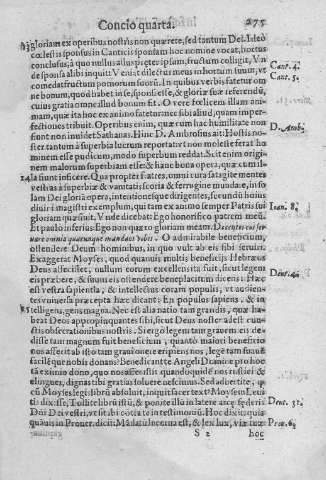 Concio quarta. 275
gloriam ex operibus nostris non quærere, sed tantum Dei. Ideò
cœlestis sponsus in Canticis sponsam hoc nomine vocat, hortus
conclusus, à quo nullus alius præter ipsum, fructum colligit, Vn
de sponsa alibi inquit: Veniat dilectus meus in hortum suum, vt Cant. 4.
comedat fructum pomorum suorũ. In quibus verbis fatetur om Cant. 5.
ne bonum, quod habet in se, sponsi esse, & gloriæ suæ referendũ,
cuius gratia omne illud bonum fit. O vere fœlicem illam ani-
mam, quæ ita hoc ex animo fatetur nec sibi aliud, quam imper-
fectiones tribuit. Operibus enim, quæ cum hac humilitate non
sunt non inuidet Sathanas. Hinc D. Ambrosius ait: Hostis no- D. Amb.
ster tantum à superbia lucrum reportat: non moleste ferat ho
minem esse pudicum, modo superbum reddat. Scit enim origi-
nem malorum superbiam esse: & hanc bona opera, quæ
inficere. Qua propter fratres, omni cura satagite mentes
vestras à superbiæ & vanitatis scoria & ferrugine mundare, in so
lam Dei gloriã opera, intentionesque dirigentes, secundũ huius
diuini magistri exemplum, qui tam ex animo semper Patris sui Ioan. 8.
gloriam quæsiuit. Vnde dicebat: Ego honorifico patrem meũ.
Et paulo inferius: Ego non quæro gloriam meam.
omnia quæcunque mandaui vobis. O admirabile beneficium,
ostendere Deum hominibus, in quo vult ab eis sibi seruiri.
Exaggerat Moyses, quod quamuis multis beneficijs Hebræos
Deus affecisset, nullum eorum excellentia fuit, sicut legem
eis præscribere, & suum eis ostendere beneplacitum dicens: Hæc Deut. 4.
est vestra sapientia, & intellectus coram populis, vt audien-
tes vniuersa præcepta hæc dicant: En populus sapiens, & in
telligens, gens magna. Nec est alia natio tam grandis, quæ ha-
beat Deos appropinquantes sibi, sicut Deus noster adest cun-
ctis obsecrationibus nostris. Si ergo legem tam grauem eis de-
disse tam magnum fuit beneficium, quanto maiori beneficio
nos affecit ab isto tam graui onere eripiens nos, lege tam suaui &
facili que nobis donans? Benedicant te Angeli Domine pro hoc
tã eximio dono, quo nos affecisti: quando quidé nos rustici &
elingues, dignas tibi gratias soluere nescimus. Sed aduertite,
cũ Moyses legis librũ absoluit, inquit sacer textus Moysen Leui-
tis dixisse, Tollite librũ istũ, & ponite illũ in latere arcæ fœderis Deut. 31.
Dñi Dei vestri, vt sit ibi cõtra te in testimoniũ. Hoc dixit quia
quãuis in Prouer. dicit: Mãdatũ lucerna est, & lex lux, viæ Prou. 6.
S 2 hoc